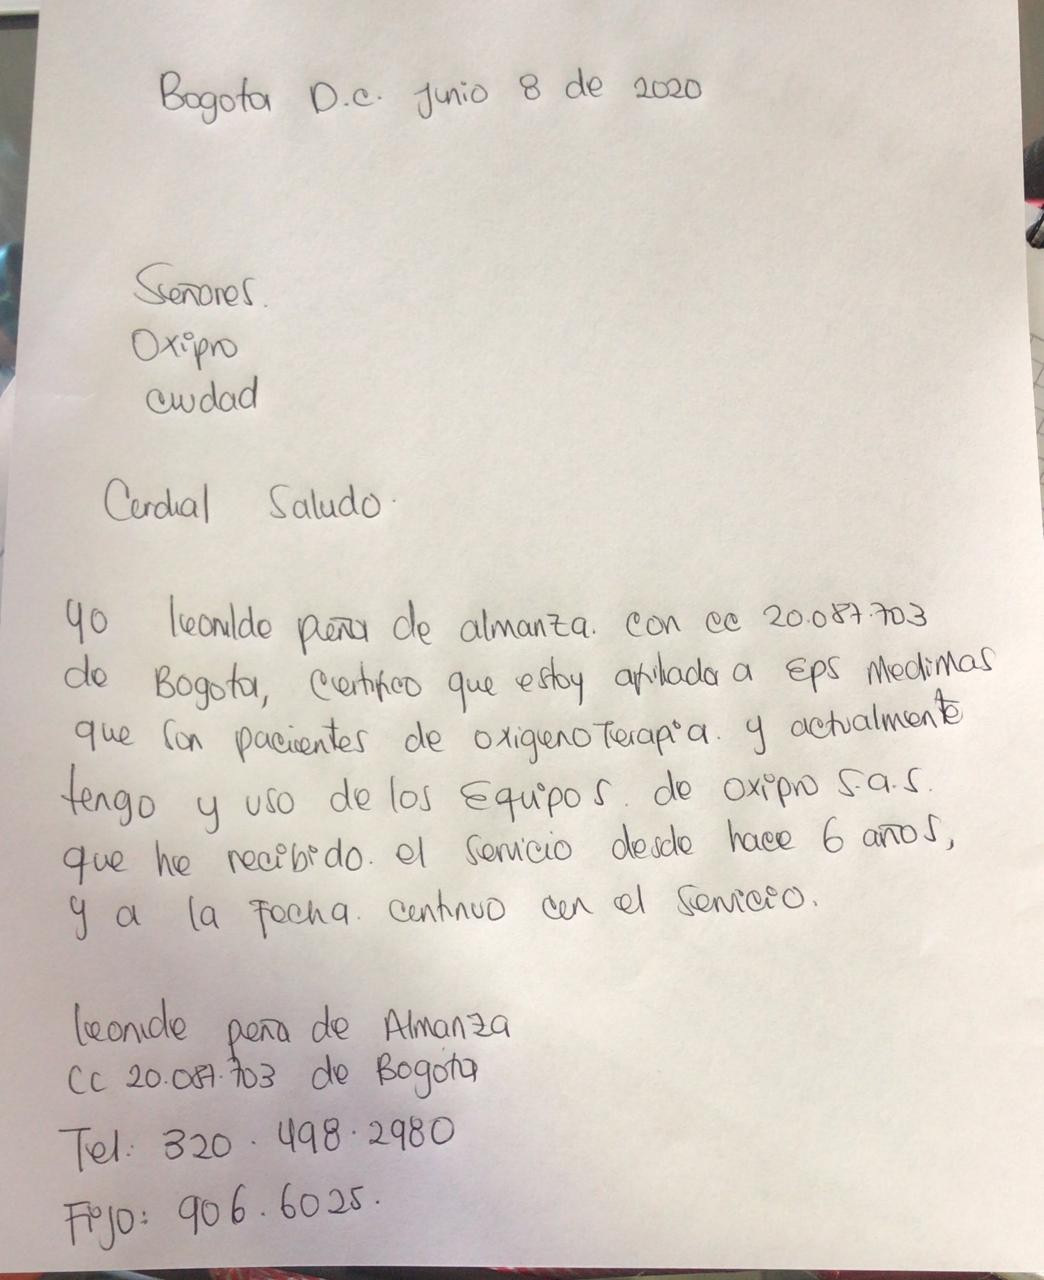 Bogota D.C. Junio 8 de 2020
Señores.
Oxipro
ciudad
Cordial Saludo.
yo leonilde peña de almanza. con cc 20.087.703
de Bogota, certifico que estoy afiliada a Eps Medimas
que son pacientes de oxigenoTerapia. y actualmente
tengo y uso de los Equipos. de oxipro S.a.s.
que he recibido. el servicio desde hace 6 años,
y a la Fecha. continuo con el servicio.
leonide peña de Almanza
CC 20.087.703 de Bogota
Tel: 320.498.2980
Fijo: 906.6025.